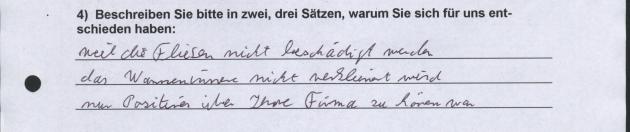 4) Beschreiben Sie bitte in zwei, drei Sätzen, warum Sie sich für uns ent-
schieden haben:
weil die Fliesen nicht beschädigt werden
das Wanneninnere nicht verkleinert wird
nur Positives über Ihre Firma zu hören war